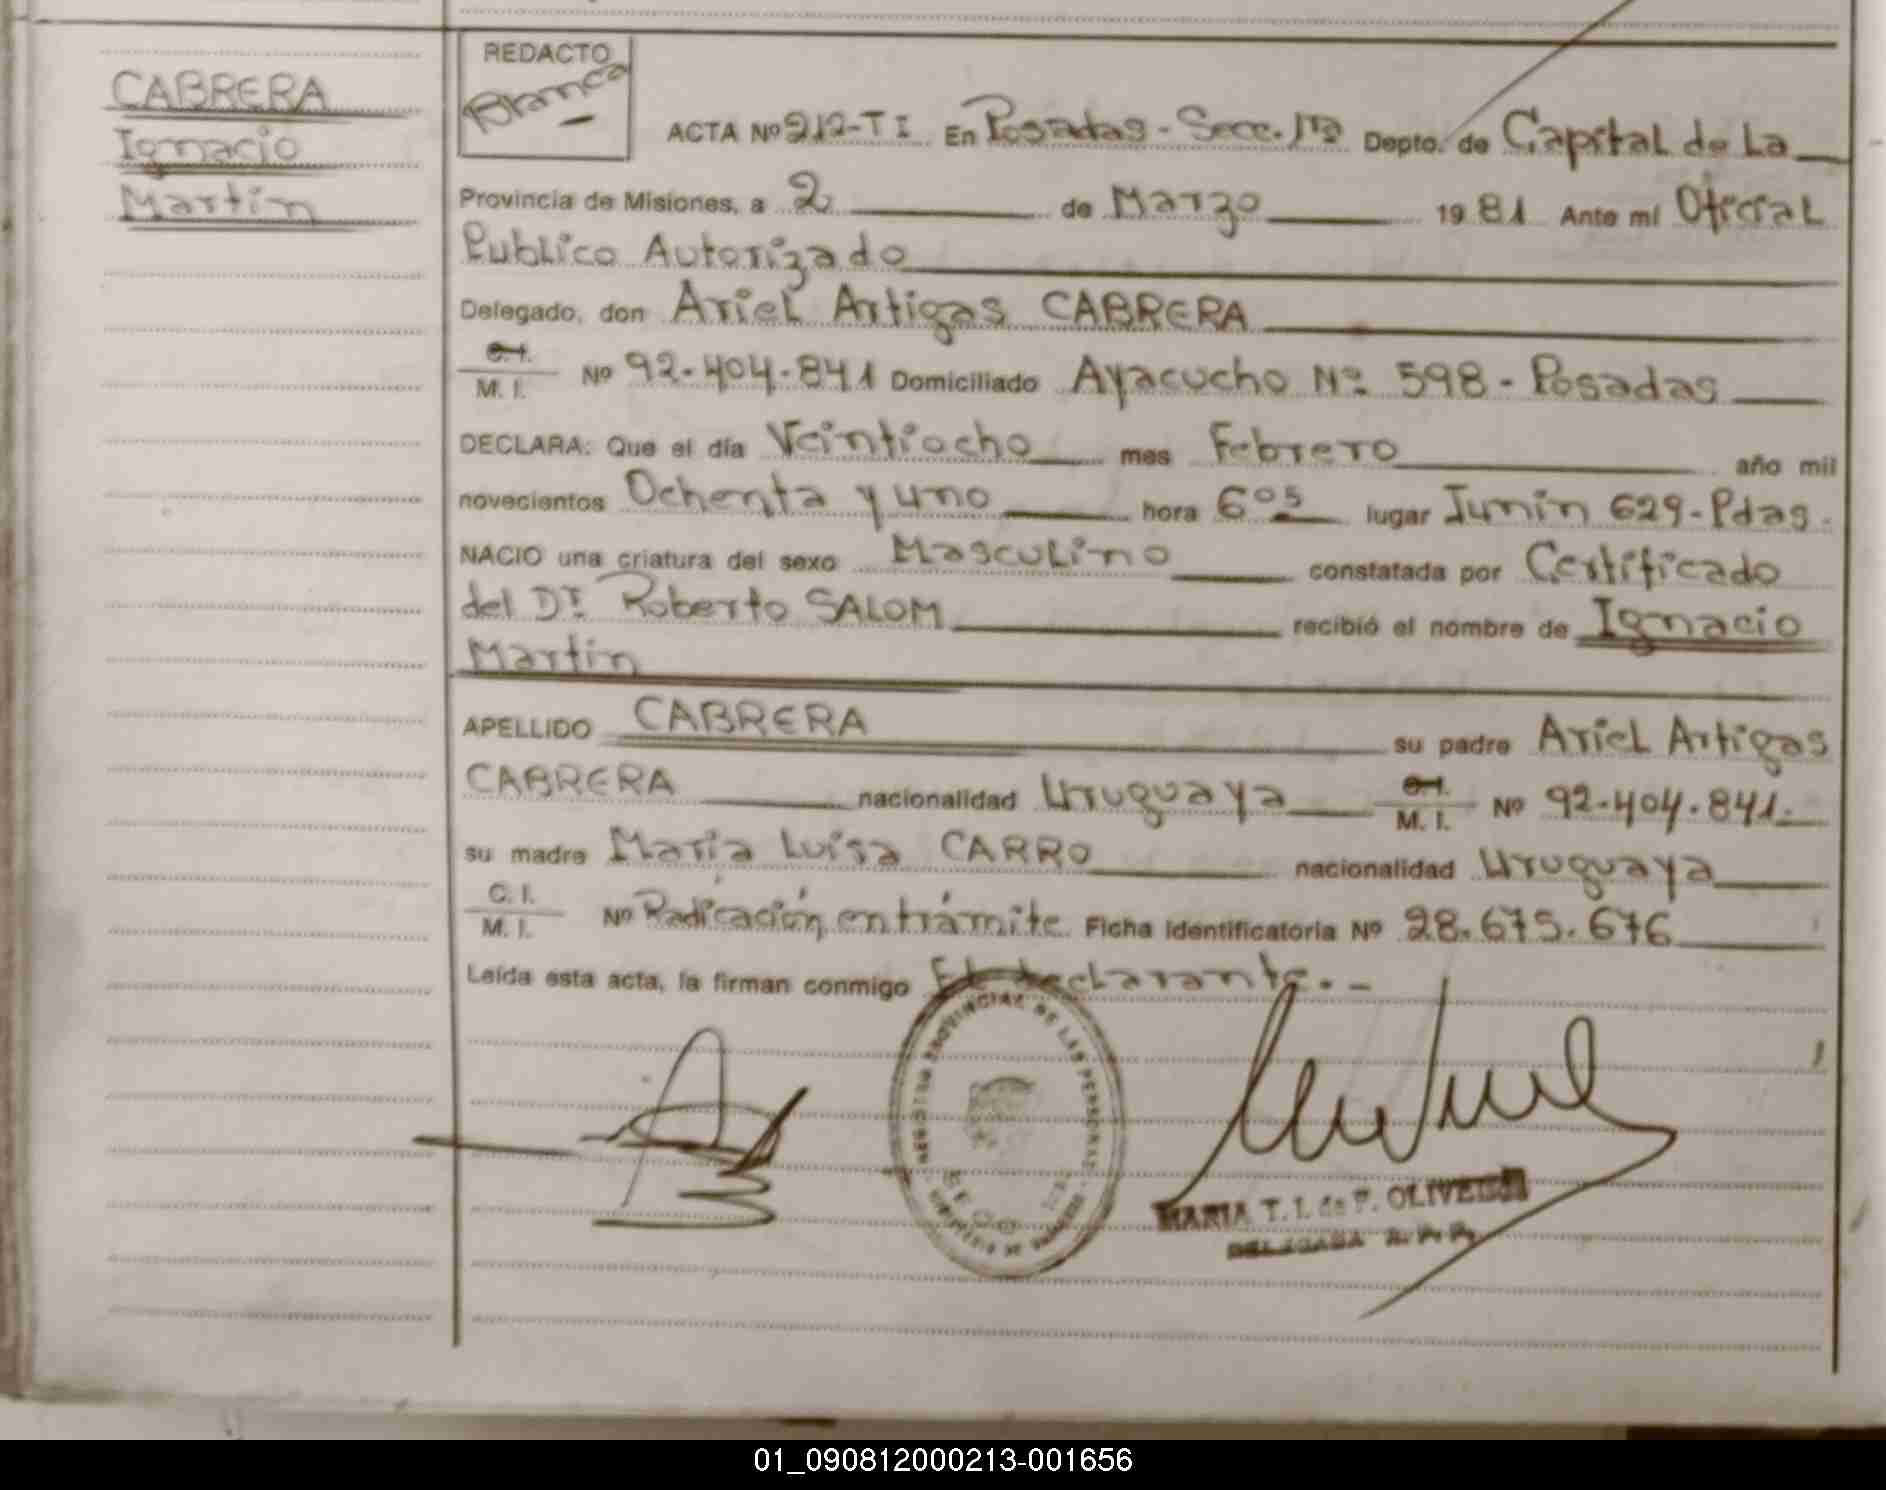 CABRERA
Ignacio
Martín
REDACTO
Blanca
ACTA Nº 212-T I En Posadas - Secc. 1ra Depto. de Capital de La
Provincia de Misiones, a 2 de Marzo 1981 Ante mí Oficial
Publico Autorizado
Delegado, don Ariel Artigas CABRERA
C.I. / M. I. Nº 92.404.841 Domiciliado Ayacucho Nº 598 - Posadas
DECLARA: Que el día Veintiocho mes Febrero año mil
novecientos Ochenta y uno hora 6 05 lugar Junín 629 - Pdas.
NACIO una criatura del sexo Masculino constatada por Certificado
del Dr. Roberto SALOM recibió el nombre de Ignacio
Martín
APELLIDO CABRERA su padre Ariel Artigas
CABRERA nacionalidad Uruguaya C.I. / M. I. Nº 92.404.841.
su madre María Luisa CARRO nacionalidad Uruguaya
C. I. / M. I. Nº Radicación en trámite Ficha identificatoria Nº 28.675.676
Leída esta acta, la firman conmigo El declarante. -
PROVINCIAL DE LAS PERSONAS
MARIA T. I. de F. OLIVEIRA
DELEGADA R. P. P.
01_090812000213-001656